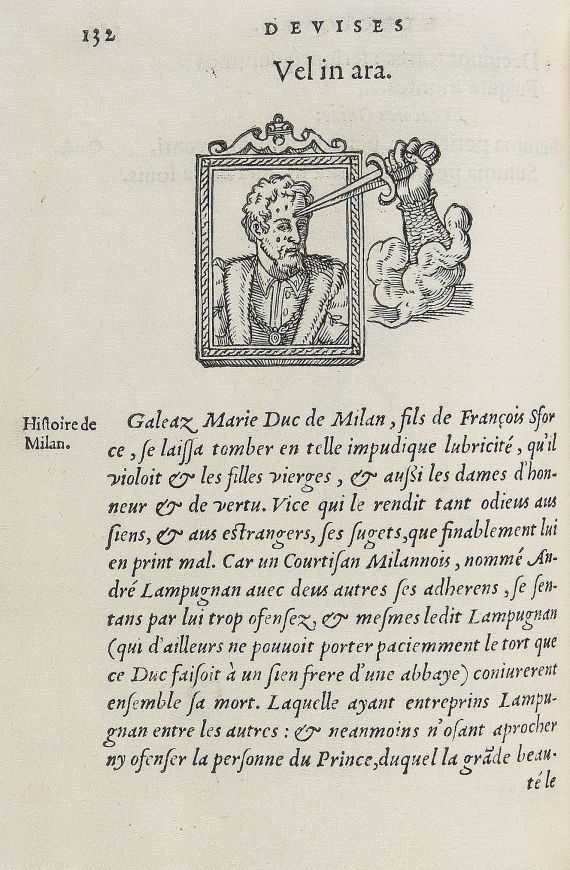 132
DEVISES
Vel in ara.
Histoire de
Milan.
Galeaz Marie Duc de Milan, fils de François Sfor
ce, se laissa tomber en telle impudique lubricité, qu'il
violoit & les filles vierges, & außi les dames d'hon-
neur & de vertu. Vice qui le rendit tant odieus aus
siens, & aus estrangers, ses sugets, que finablement lui
en print mal. Car un Courtisan Milannois, nommé An-
dré Lampugnan auec deus autres ses adherens, se sen-
tans par lui trop ofensez, & mesmes ledit Lampugnan
(qui d'ailleurs ne pouuoit porter paciemment le tort que
ce Duc faisoit à un sien frere d'une abbaye) coniurerent
ensemble sa mort. Laquelle ayant entreprins Lampu-
gnan entre les autres: & neanmoins n'osant aprocher
ny ofenser la personne du Prince, duquel la grãde beau-
té le